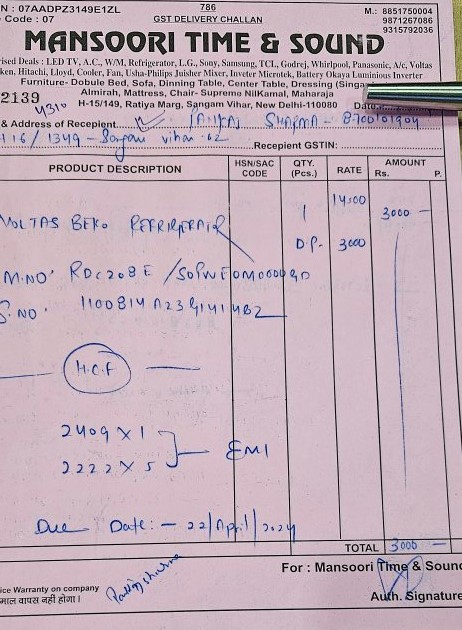 N : 07AADPZ3149E1ZL 786 M.: 8851750004
Code : 07 GST DELIVERY CHALLAN 9871267086
9315792036
MANSOORI TIME & SOUND
rised Deals : LED TV, A.C., W/M, Refrigerator, L.G., Sony, Samsung, TCL, Godrej, Whirlpool, Panasonic, A/c, Voltas
ken, Hitachi, Lloyd, Cooler, Fan, Usha-Philips Juisher Mixer, Inveter Microtek, Battery Okaya Luminious Inverter
Furniture- Dobule Bed, Sofa, Dinning Table, Center Table, Dressing (Singar
Almirah, Mattress, Chair- Supreme NilKamal, Maharaja
2139 H-15/149, Ratiya Marg, Sangam Vihar, New Delhi-110080 Date
4310
& Address of Recepient PANKAJ SHARMA - 8700101904
116/1349 - Sangam vihar - 62 Recepient GSTIN:
PRODUCT DESCRIPTION HSN/SAC CODE QTY. (Pcs.) RATE AMOUNT Rs. P.
14500
VOLTAS BEKO REFRIGERATOR 1 3000 —
D.P- 3000
M.NO' RDC208E /
S.NO'
H.C.F
2409 X 1
2222 X 5 — EMI
Due Date: - 22/April/2024
TOTAL 3000 —
For : Mansoori Time & Sound
ice Warranty on company
माल वापस नहीं होगा।
Auth. Signature